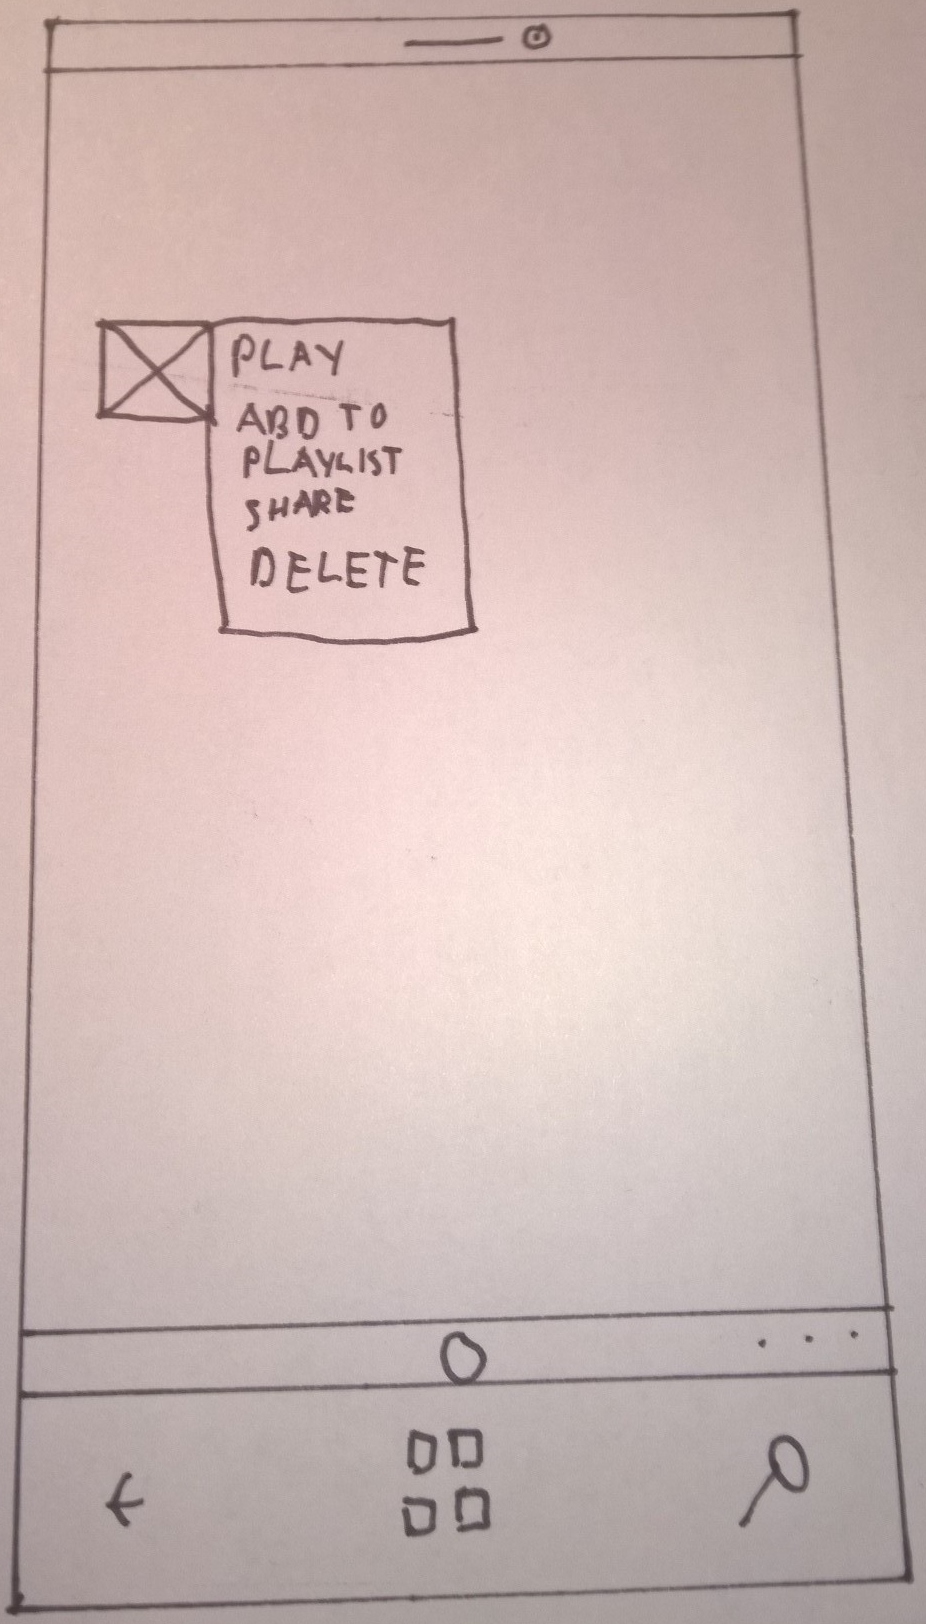 PLAY
ADD TO
PLAYLIST
SHARE
DELETE